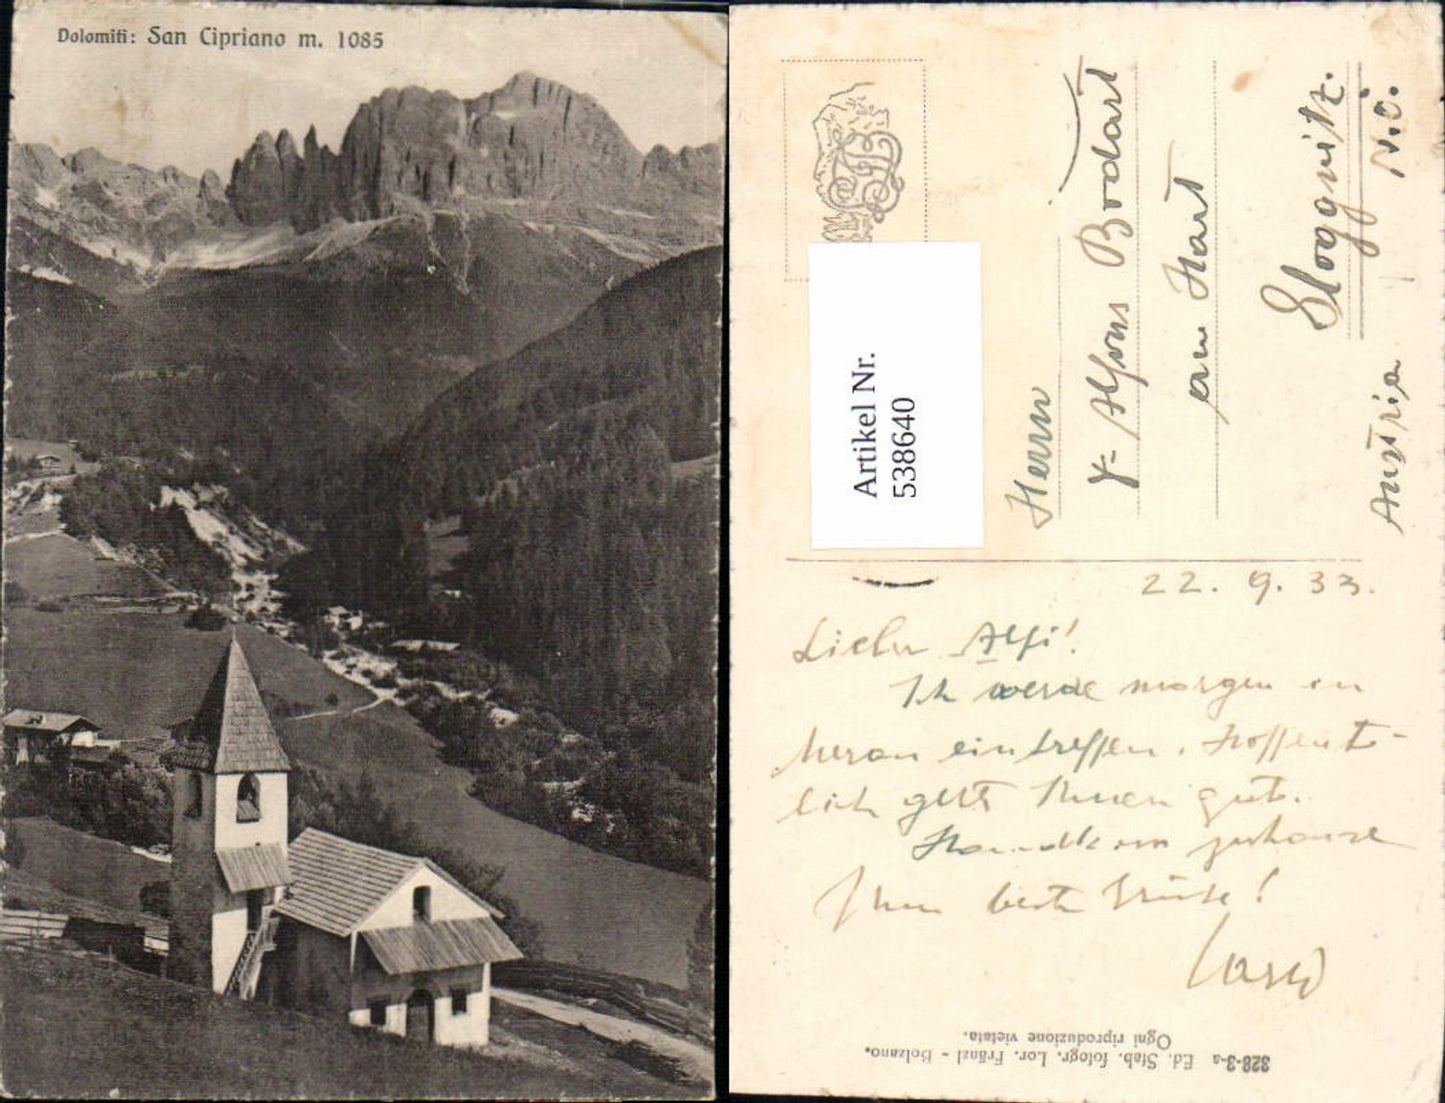 Dolomiti: San Cipriano m. 1085
Artikel Nr.
538640
Herrn
Alfons Bodart
Gloggnitz.
N.Ö.
Austria
22. 9. 33.
Lieber Alfi!
Ich werde morgen in
Meran eintreffen. Hoffent-
lich geht's Ihnen gut.
zuhause
Ihnen beste Grüsse!
328-3-a Ed. Stab. fotogr. Lor. Fränzl - Bolzano.
Ogni riproduzione vietata.